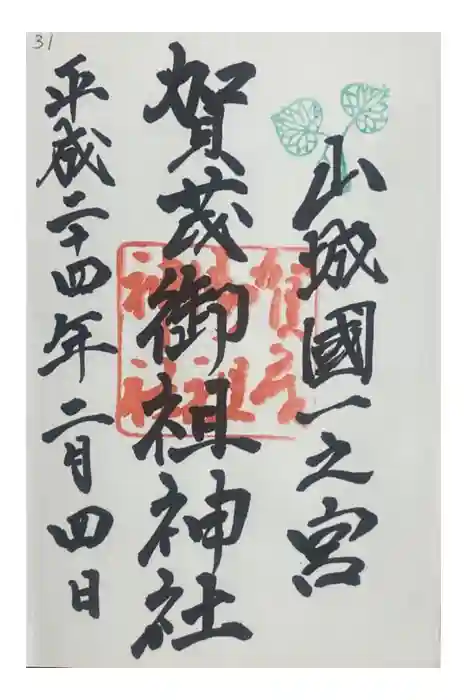 31
山城國一之宮
賀茂御祖神社
平成二十四年二月四日